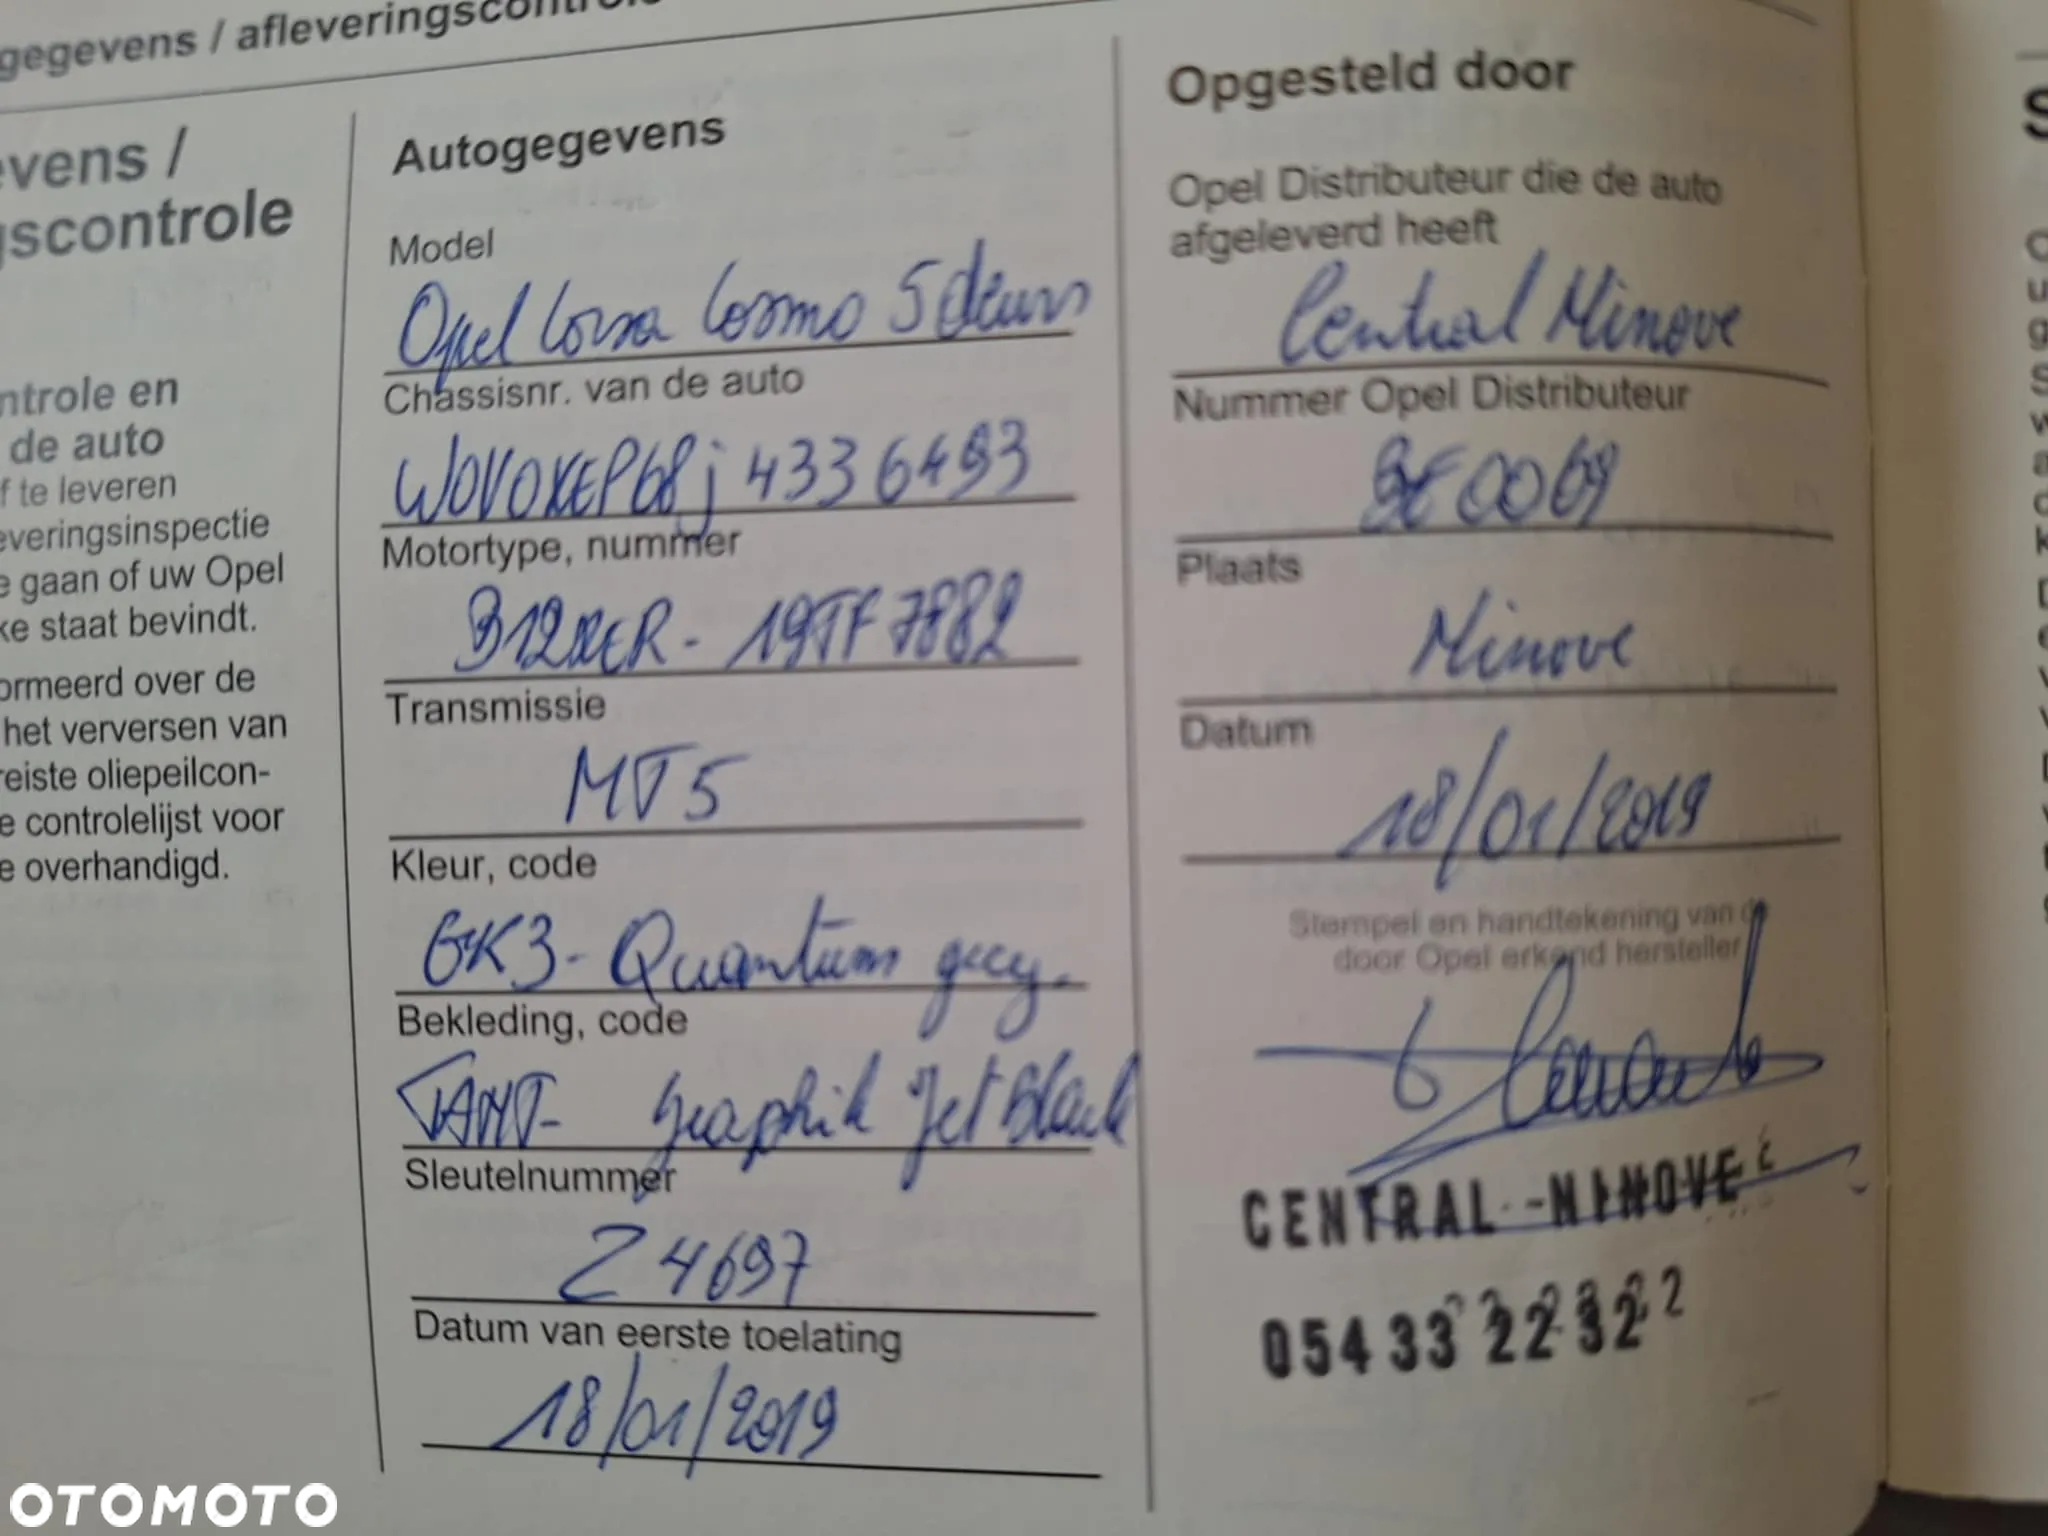 gegevens / afleveringscontrole
evens /
gscontrole
ntrole en
de auto
f te leveren
everingsinspectie
e gaan of uw Opel
ke staat bevindt.
ormeerd over de
het verversen van
reiste oliepeilcon-
e controlelijst voor
e overhandigd.
Autogegevens
Model
Opel Corsa Cosmo 5 deurs
Chassisnr. van de auto
W0V0XEP68j 4336493
Motortype, nummer
B12XER - 19TF7882
Transmissie
MT5
Kleur, code
GK3 - Quantum grey.
Bekleding, code
TANT- Graphik Jet Black
Sleutelnummer
Z 4697
Datum van eerste toelating
18/01/2019
Opgesteld door
Opel Distributeur die de auto
afgeleverd heeft
Central Ninove
Nummer Opel Distributeur
BE0069
Plaats
Ninove
Datum
18/01/2019
Stempel en handtekening van de
door Opel erkend hersteller
CENTRAL - NINOVE
054 33 22 32
OTOMOTO